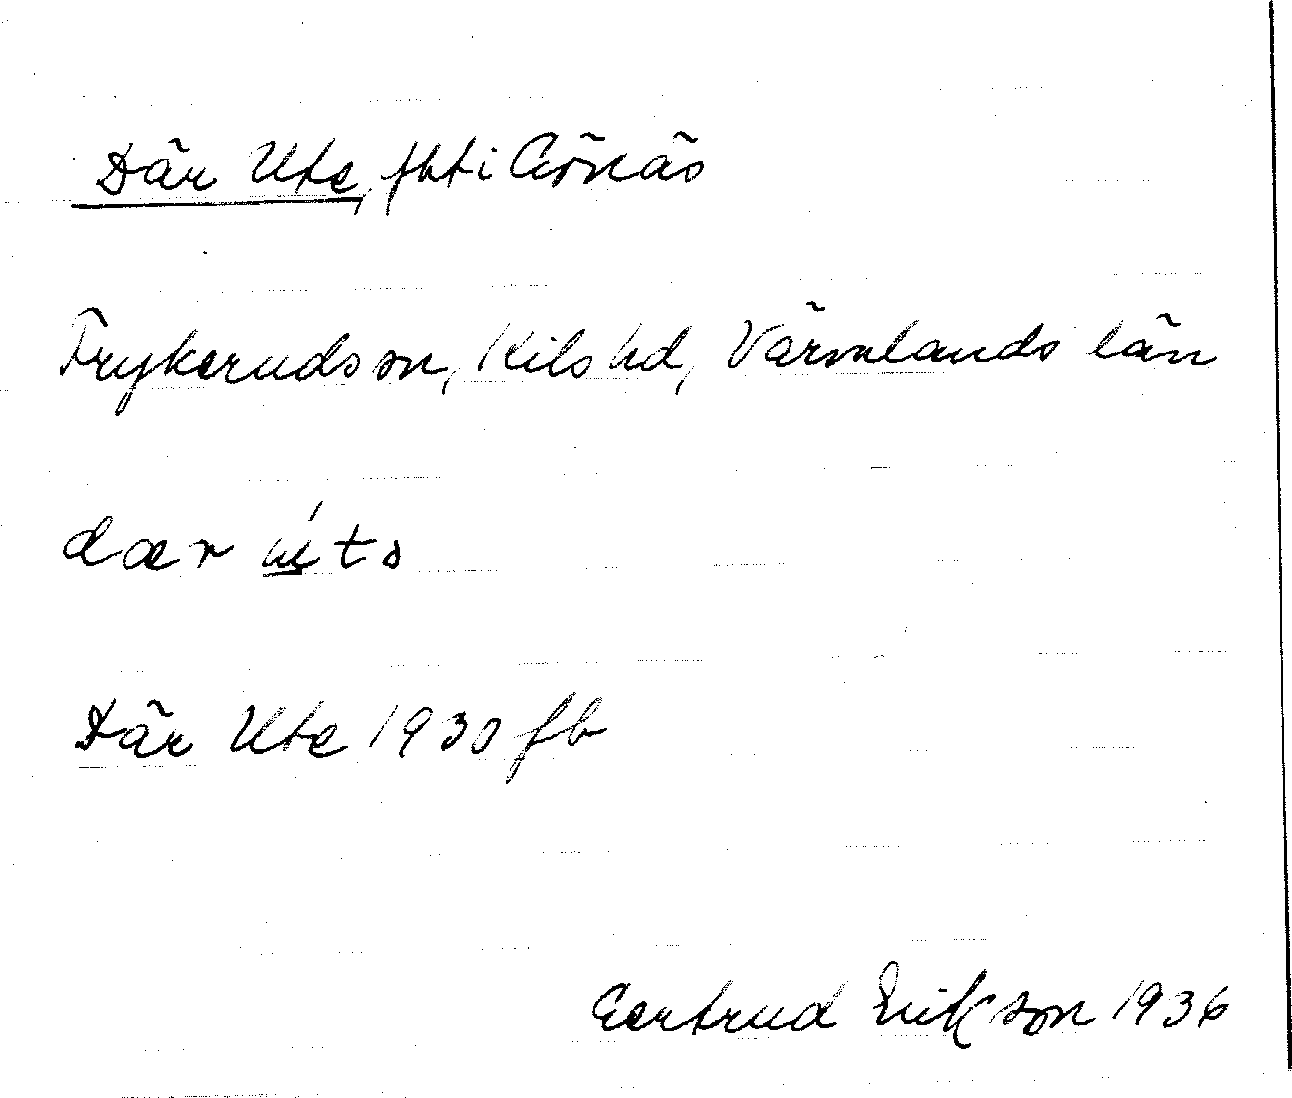 Där Ute, fht i Grönäs
Frykeruds sn, Kils hd, Värmlands län
dær úta
Där Ute 1930 fb
Gertrud Erikson 1936